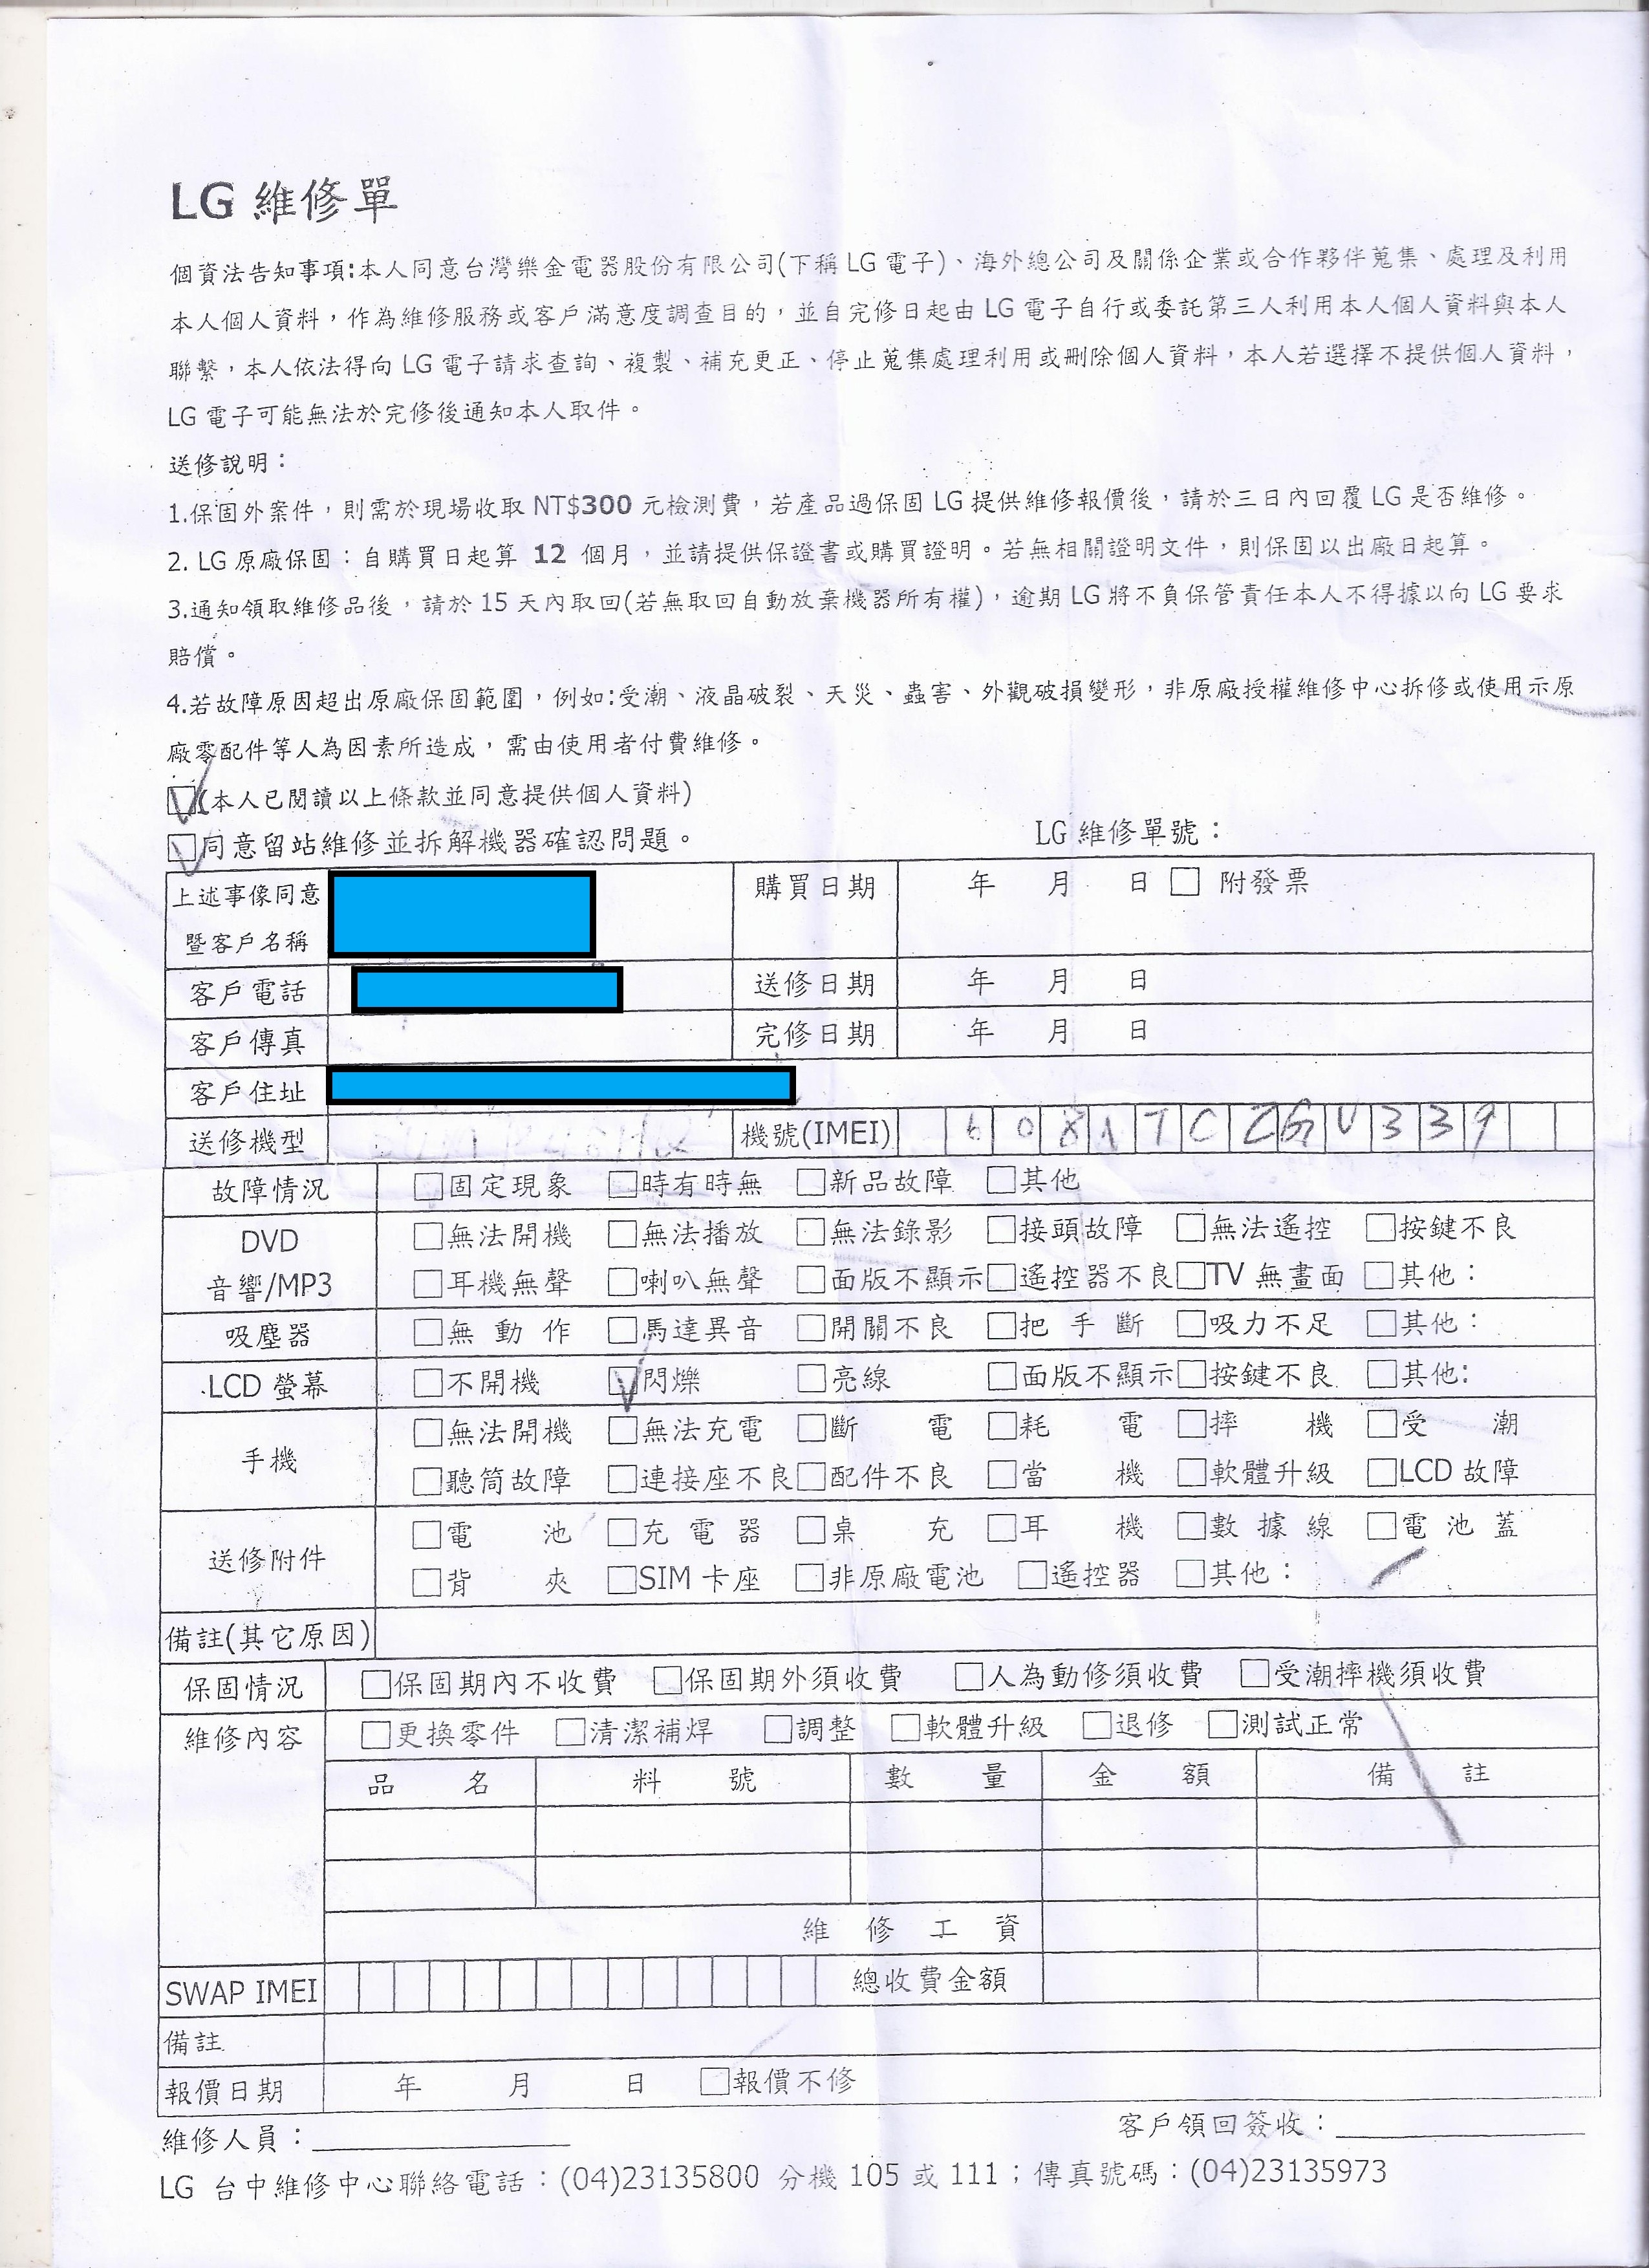 LG 維修單
個資法告知事項:本人同意台灣樂金電器股份有限公司(下稱 LG 電子)、海外總公司及關係企業或合作夥伴蒐集、處理及利用
本人個人資料，作為維修服務或客戶滿意度調查目的，並自完修日起由 LG 電子自行或委託第三人利用本人個人資料與本人
聯繫，本人依法得向 LG 電子請求查詢、複製、補充更正、停止蒐集處理利用或刪除個人資料，本人若選擇不提供個人資料，
LG 電子可能無法於完修後通知本人取件。
送修說明：
1.保固外案件，則需於現場收取 NT$300 元檢測費，若產品過保固 LG 提供維修報價後，請於三日內回覆 LG 是否維修。
2. LG 原廠保固：自購買日起算 12 個月，並請提供保證書或購買證明。若無相關證明文件，則保固以出廠日起算。
3.通知領取維修品後，請於 15 天內取回(若無取回自動放棄機器所有權)，逾期 LG 將不負保管責任本人不得據以向 LG 要求
賠償。
4.若故障原因超出原廠保固範圍，例如:受潮、液晶破裂、天災、蟲害、外觀破損變形，非原廠授權維修中心拆修或使用示原
廠零配件等人為因素所造成，需由使用者付費維修。
☑(本人已閱讀以上條款並同意提供個人資料)
☑同意留站維修並拆解機器確認問題。 LG 維修單號：
上述事像同意 購買日期 年 月 日 □ 附發票
暨客戶名稱
客戶電話 送修日期 年 月 日
客戶傳真 完修日期 年 月 日
客戶住址
送修機型 機號(IMEI) 6 0 8 1 T C Z G V 3 3 9
故障情況 □固定現象 □時有時無 □新品故障 □其他
DVD □無法開機 □無法播放 □無法錄影 □接頭故障 □無法遙控 □按鍵不良
音響/MP3 □耳機無聲 □喇叭無聲 □面版不顯示 □遙控器不良 □TV 無畫面 □其他：
吸塵器 □無動作 □馬達異音 □開關不良 □把手斷 □吸力不足 □其他：
LCD 螢幕 □不開機 ☑閃爍 □亮線 □面版不顯示 □按鍵不良 □其他:
手機 □無法開機 □無法充電 □斷電 □耗電 □摔機 □受潮
□聽筒故障 □連接座不良 □配件不良 □當機 □軟體升級 □LCD 故障
送修附件 □電池 □充電器 □桌充 □耳機 □數據線 □電池蓋
□背夾 □SIM 卡座 □非原廠電池 □遙控器 □其他：
備註(其它原因)
保固情況 □保固期內不收費 □保固期外須收費 □人為動修須收費 □受潮摔機須收費
維修內容 □更換零件 □清潔補焊 □調整 □軟體升級 □退修 □測試正常
品名 料號 數量 金額 備註
維修工資
SWAP IMEI 總收費金額
備註
報價日期 年 月 日 □報價不修
維修人員： 客戶領回簽收：
LG 台中維修中心聯絡電話：(04)23135800 分機 105 或 111；傳真號碼：(04)23135973